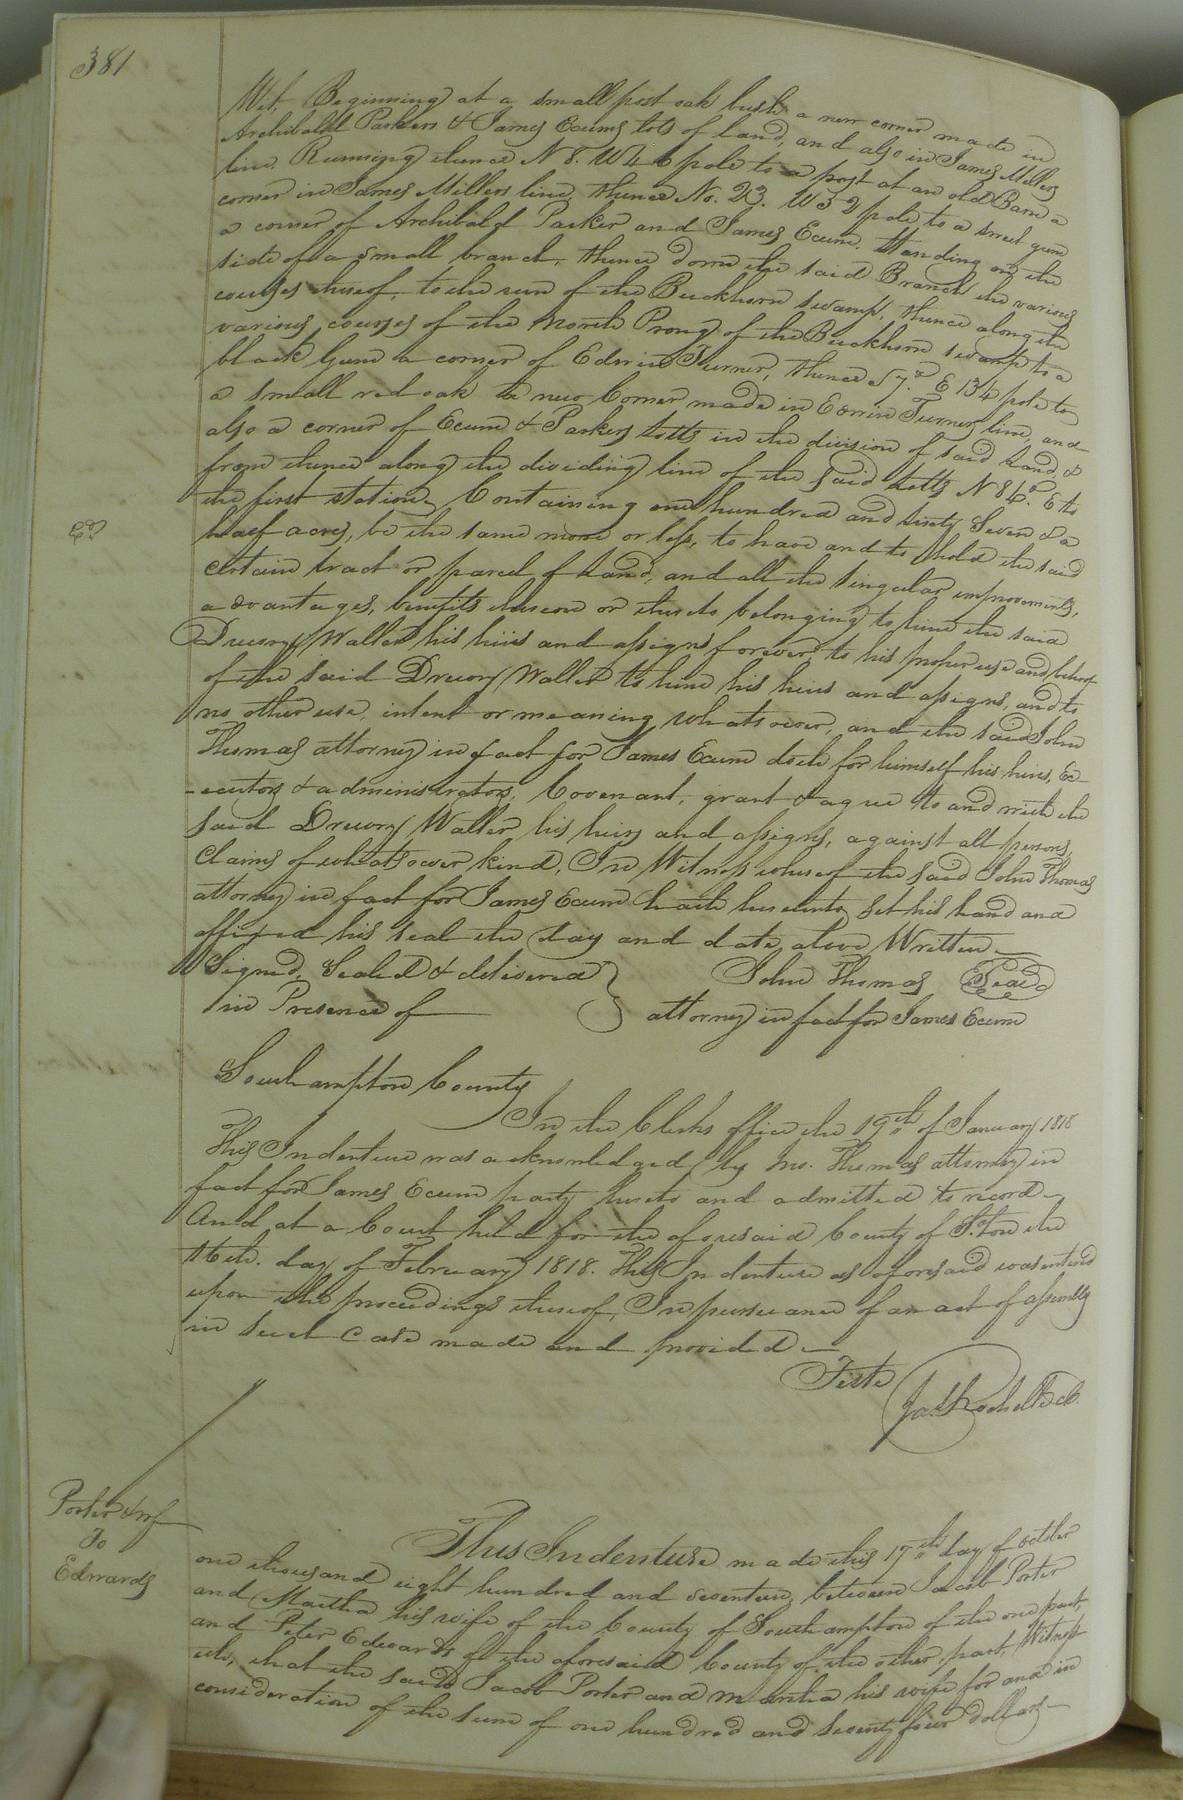 381
Wit. Beginning at a small post oak bush a new corner made in
Archibald Parkers & James Ecums lots of land, and also in James Millers
line. Running thence N 8. W 46 pole to a post at an old Barn a
corner in James Millers line, thence No. 23. W 52 pole to a sweet gum
a corner of Archibald Parker and James Ecum. Standing on the
side of a small branch, thence down the said Branch the various
courses thereof, to the run of the Buckhorn swamp, thence along the
various courses of the North Prong of the Buckhorn swamp to a
black Gum a corner of Edwin Turner, thence S 7.° E 134 pole to
a small red oak a new Corner made in Edwin Turners line, and
also a corner of Ecum & Parkers lotts in the division of said Land, &
from thence along the dividing line of the said Lotts N 84°. E to
the first station, Containing one hundred and sixty Seven & a
half acres, be the same more or less, to have and to hold the said
certain tract or parcel of Land, and all the singular improvements,
advantages, benefits thereon or thereto belonging to him the said
Drewry Waller his heirs and assigns forever, to his proper use and behoof
of the said Drewry Waller to him his heirs and assigns, and to
no other use, intent or meaning whatsoever, and the said John
Thomas attorney in fact for James Ecum doth for himself his heirs, Ex-
-ecutors & administrators, Covenant, grant & agree to and with the
said Drewry Waller his heirs and assigns, against all persons,
Claims of whatsoever kind, In Witness whereof the said John Thomas
attorney in fact for James Ecum hath hereunto set his hand and
affixed his seal the day and date above Written
Signed, Sealed & delivered } John Thomas Seal
in Presence of attorney in fact for James Ecum
Southampton County
In the Clerks office the 19th of January 1818
This Indenture was acknowledged by Jno. Thomas attorney in
fact for James Ecum party thereto and admitted to record
And at a Court held for the aforesaid County of S.ton the
16th. day of February 1818. This Indenture as aforesaid was entered
upon the proceedings thereof, In pursuance of an act of assembly
in such case made and provided
Teste
Jas. Rochelle Cl.
Porter & wf
To
Edwards
This Indenture made this 17th day of october
one thousand eight hundred and seventeen, between Jacob Porter
and Martha his wife of the County of Southampton of the one part,
and Peter Edwards of the aforesaid County of the other part, Witness
eth, that the said Jacob Porter and Martha his wife for and in
consideration of the sum of one hundred and seventy four dollars